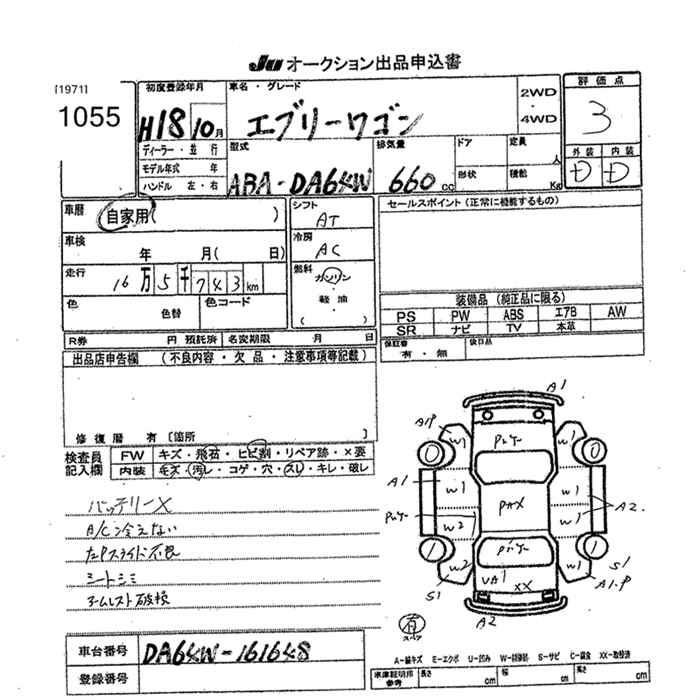 JU オークション出品申込書
[1971]
1055
初度登録年月
H18 10月
車名・グレード
エブリーワゴン
2WD
・
4WD
評価点
3
ディーラー・並行
モデル年式 年
ハンドル 左・右
型式
ABA-DA64W
排気量
660 cc
ドア
形状
定員 人
積載 Kg
外装 内装
D D
車暦 自家用( )
車検 年 月( 日)
走行 16万5千743km
色 色替 色コード
シフト
AT
冷房
AC
燃料
ガソリン
・
軽油
( )
セールスポイント(正常に機能するもの)
装備品(純正品に限る)
PS PW ABS エアB AW
SR ナビ TV 本革
R券 円 預託済 名変期限 月 日
保証書 有・無
後日品
出品店申告欄(不良内容・欠品・注意事項等記載)
修復暦 有〔箇所 〕
検査員記入欄
FW キズ・飛石・ヒビ割・リペア跡・×要
内装 キズ・汚レ・コゲ・穴・スレ・キレ・破レ
バッテリーX
A/C冷えない
左Pスライド不良
シートシミ
アームレスト破損
A1
W1 W1
0 0
A1 W1 W1 A2
PAX
W2 W1
1 1
W2 W1
S1 S1
UA1 XX
A1.P
A2
有
スペア
A-線キズ E-エクボ U-凹み W-補修跡 S-サビ C-腐食 XX-取替済
車台番号 DA64W-161648
登録番号
車庫証明用参考 長さ cm 幅 cm 高さ cm